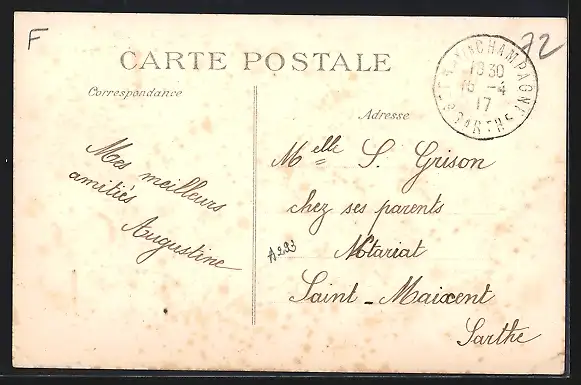 F
72
CARTE POSTALE
CHAMPAGNE
1830
16 -4
17
SARTHE
Correspondance
Adresse
Mes meilleurs
amitiés
Augustine
Melle S. Grison
chez ses parents
Notariat
Saint-Maixent
Sarthe
A293